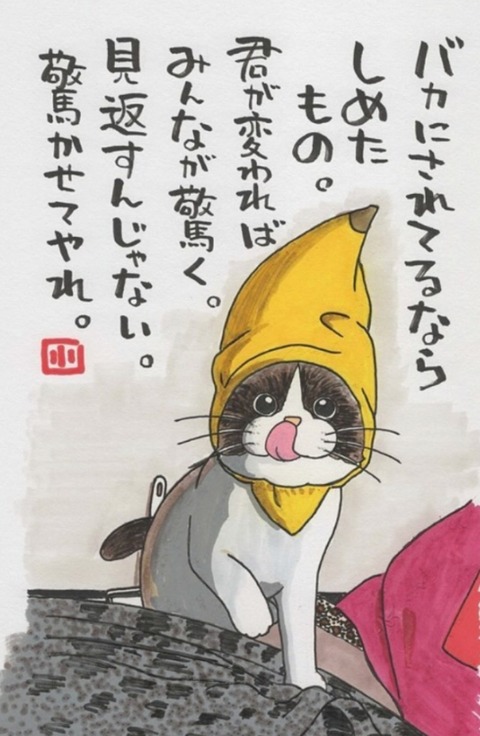 バカにされてるなら
しめた
もの。
君が変われば
みんなが驚く。
見返すんじゃない。
驚かせてやれ。
小